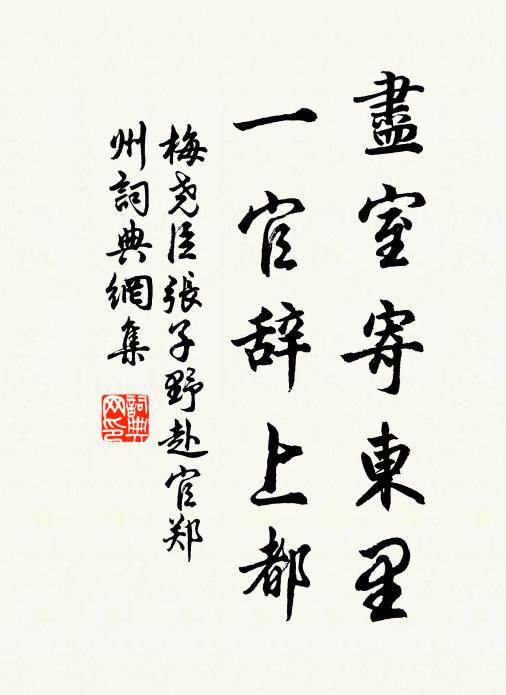 盡室寄東里
一官辞上都
梅堯臣張子野赴官郑
州詞典網集
詞典
网印